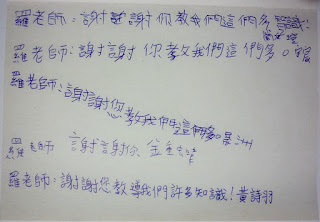 羅老師：謝謝謝你教我們這們多智識！
羅老師：謝謝 你教我們這們多。
羅老師：謝謝您教我們這們多
羅老師 謝謝你 金
羅老師：謝謝您教導我們許多知識！黃詩羽